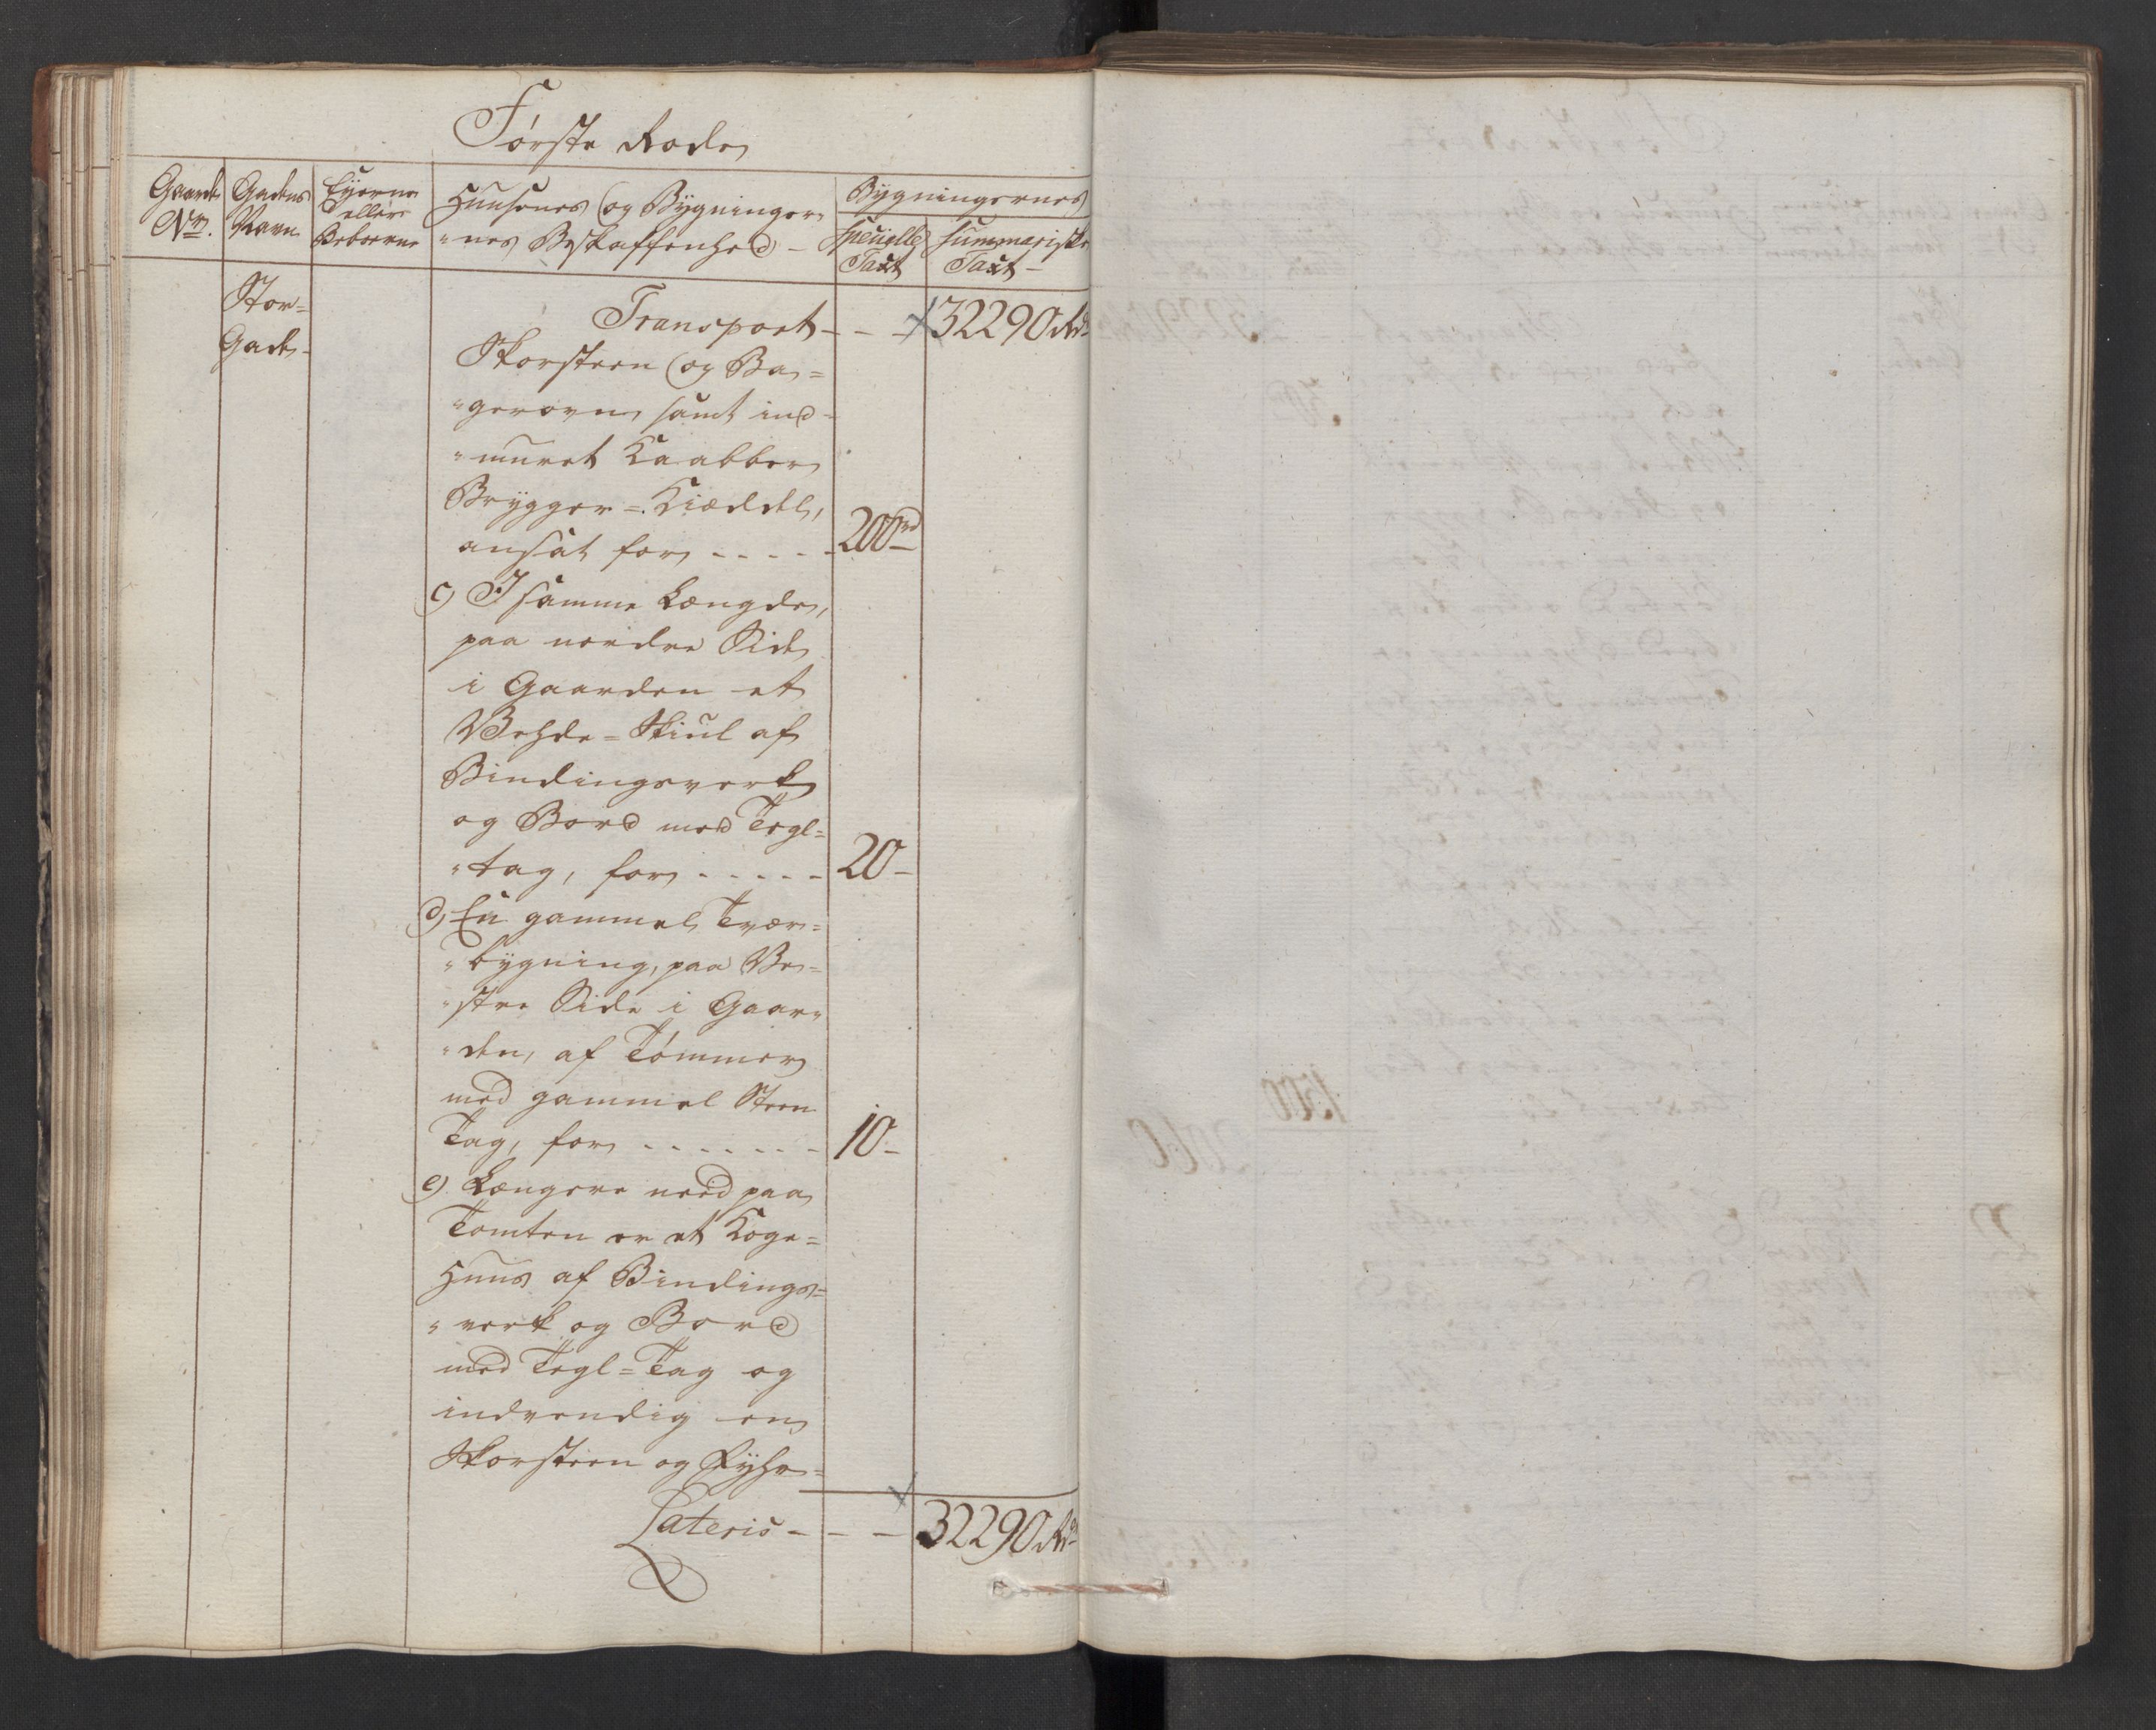 Første Rode
Gaards No.
Gadens Navn
Eyerne eller Beboerne
Huusenes og Bygninger-
"nes Beskaffenhed -
Bygningernes
specielle Taxt
summariske Taxt -
Stor=
Gade-
Transport - - - 32290 Rd
Skorsteen og Ba=
"gerovn, samt ind-
"muret Kaabber
Brygger=Kieddel,
ansat for - - - - - 200 rd
c) I samme Længde,
paa nordre Side
i Gaarden et
Vehde=Skiul af
Bindingsverk
og Bord med Tegl=
"tag, for - - - - - 20 -
d) En gammel Tvær=
"bygning, paa Ve=
"stre Side i Gaar"
"den, af Tømmer
med gammel Steen
Tag, for - - - - - - - 10 -
e) Længere need paa
Tomten er et Koge=
Huus af Bindings=
"verk og Bord
med Tegl=Tag og
indvendig en
Skorsteen og Fyhr=
Lateris - - - 32290 Rd